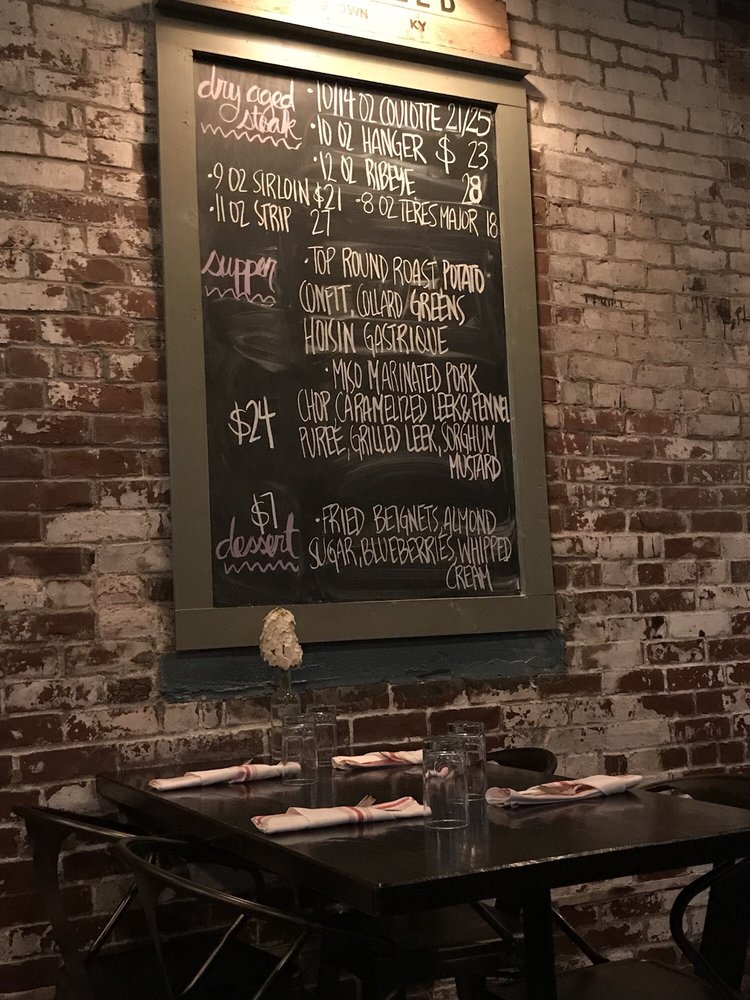 OWN KY
dry aged
steak
·10/14 OZ COULOTTE 21/25
·10 OZ HANGER $ 23
·12 OZ RIBEYE 28
·9 OZ SIRLOIN $21 -8 OZ TERES MAJOR 18
·11 OZ STRIP 27
supper
·TOP ROUND ROAST, POTATO
CONFIT, COLLARD GREENS
HOISIN GASTRIQUE
$24
·MISO MARINATED PORK
CHOP, CARAMELIZED LEEK & FENNEL
PUREE, GRILLED LEEK, SORGHUM
MUSTARD
$7
dessert
·FRIED BEIGNETS, ALMOND
SUGAR, BLUEBERRIES, WHIPPED
CREAM